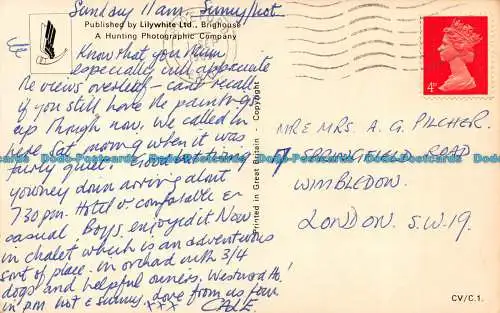 Sunday 11am. Sunny/hot
Published by Lilywhite Ltd., Brighouse
A Hunting Photographic Company
Know that you Mum
especially will appreciate
the views overleaf - can't recall
if you still have the paintings
up though now. We called in
here Sat. morning when it was
fairly quiet. Good exciting
journey down arriving about
7.30pm. Hotel v. comfortable &
casual. Boys enjoyed it. Now
in chalet which is an adventurous
sort of place. In orchard with 3/4
dogs and helpful owners. Westward Ho!
in pm hot & sunny. Love from us four
xxx
Printed in Great Britain - Copyright
4D
MR & MRS. A. G. PILCHER.
7 SPRINGFIELD ROAD
WIMBLEDON.
LONDON. S.W.19.
CV/C.1.
Dodo-Postcards Dodo-Postcards Dodo-Postcards Dodo-Postcards